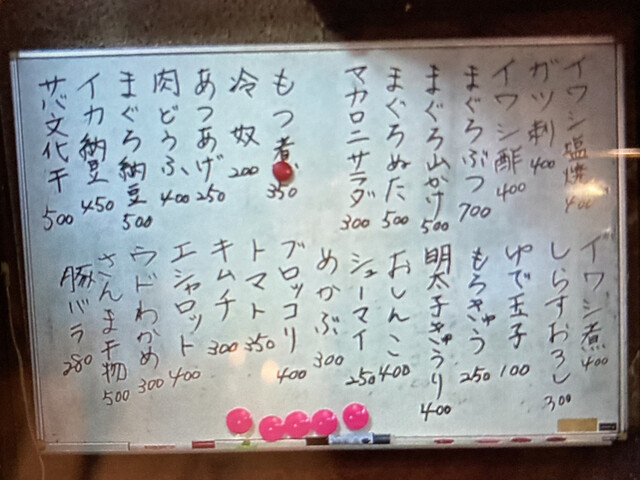 イワシ塩焼 400
ガツ刺 400
イワシ酢 400
まぐろぶつ 700
まぐろ山かけ 500
まぐろぬた 500
マカロニサラダ 300
もつ煮 350
冷奴 200
あつあげ 250
肉どうふ 400
まぐろ納豆 500
イカ納豆 450
サバ文化干 500
イワシ煮 400
しらすおろし 300
ゆで玉子 100
もろきゅう 250
明太子きゅうり 400
おしんこ 400
シューマイ 250
めかぶ 300
ブロッコリ 400
トマト 350
キムチ 300
エシャロット 400
ウドわかめ 300
さんま干物 500
豚バラ 280